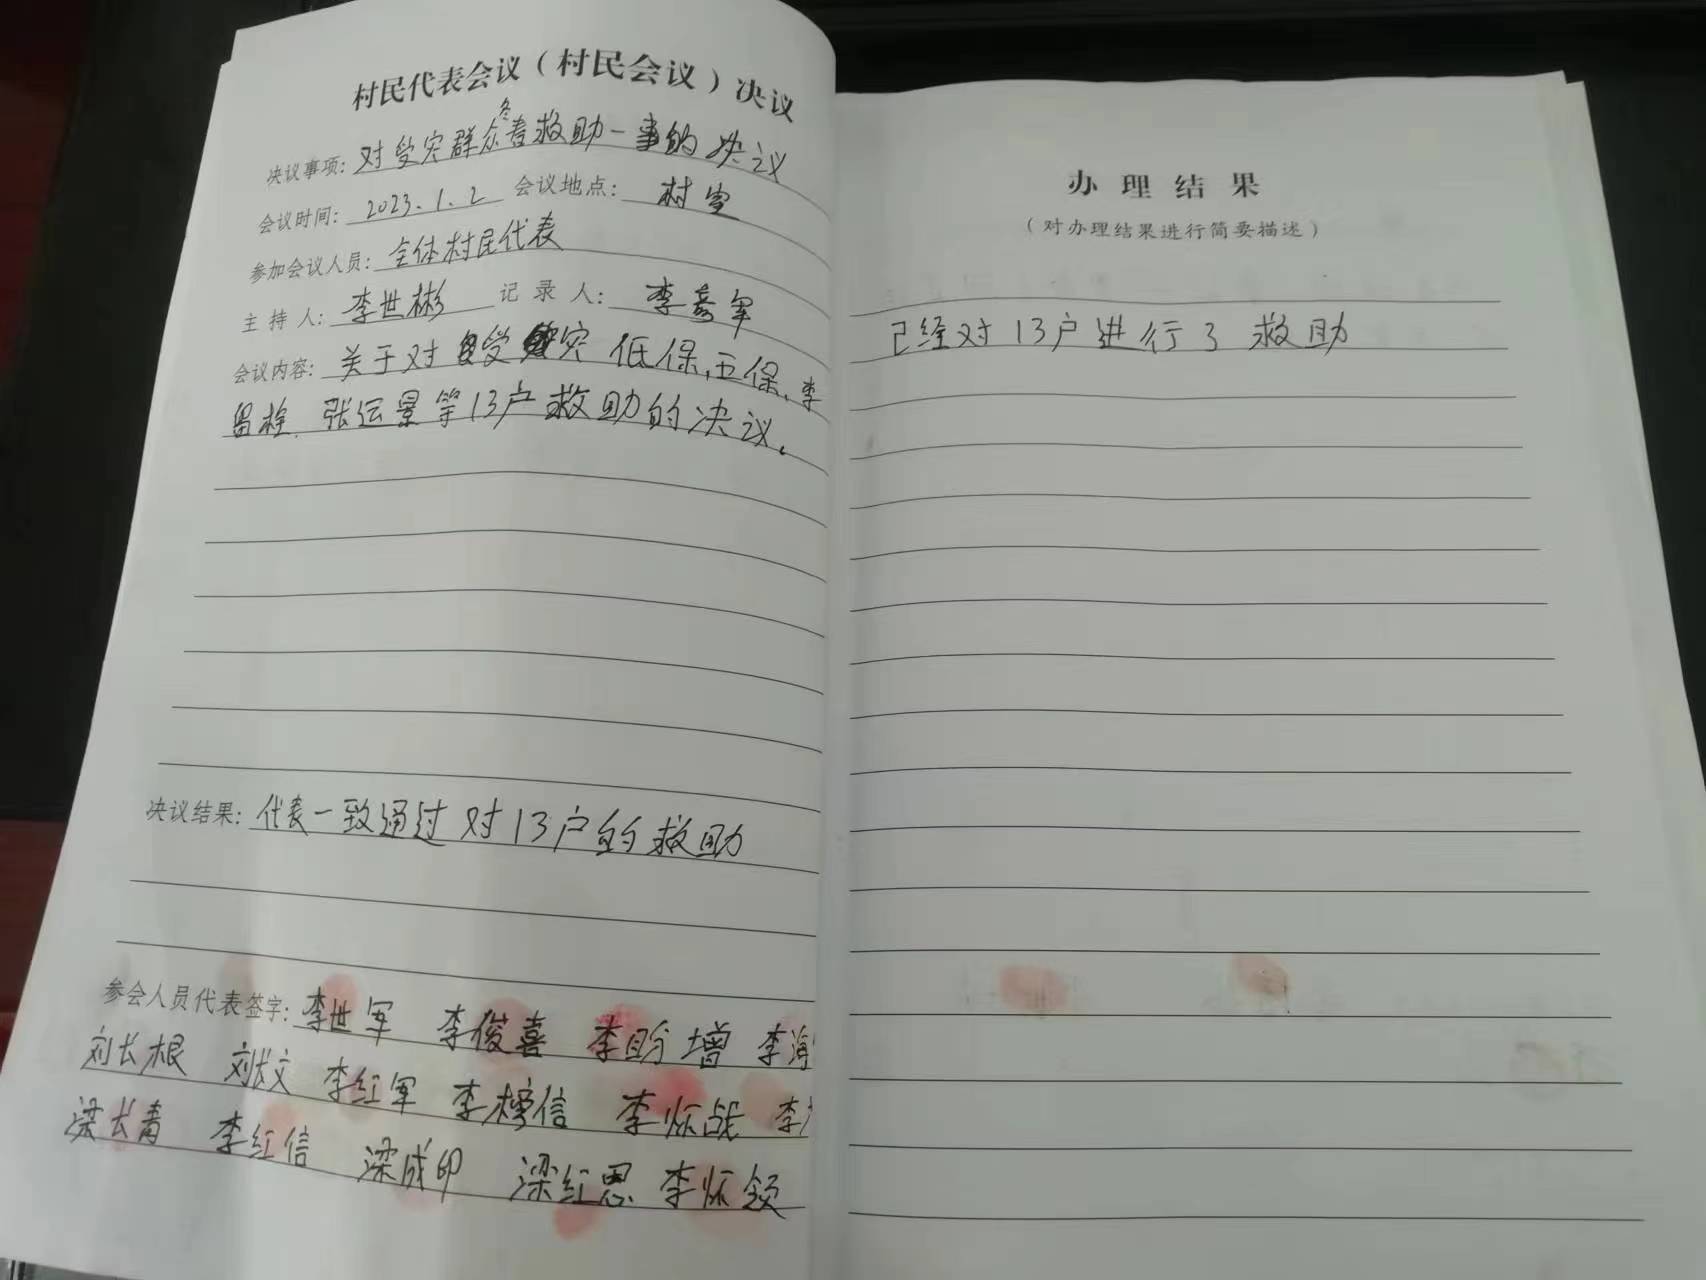 村民代表会议（村民会议）决议
决议事项：对受灾群众冬春救助一事的决议
会议时间：2023.1.2 会议地点：村室
参加会议人员：全体村民代表
主持人：李世彬 记录人：李军
会议内容：关于对受灾低保,五保,李
留栓.张运景等13户救助的决议.
决议结果：代表一致通过对13户的救助
参会人员代表签字：李世军 李俊喜 李盼增 李
刘长根 刘长文 李红军 李信 李怀战 李
梁长青 李红信 梁成印 梁红恩 李怀钦
办理结果
（对办理结果进行简要描述）
已经对13户进行了救助